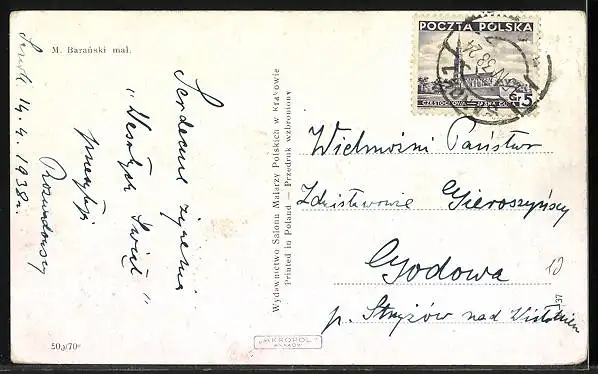 M. Barański mal.
Sanok 14.4.1938.
Serdeczne życzenia
„Wesołych Świąt"
przesyłają
Wydawnictwo Salonu Malarzy Polskich w Krakowie
Printed in Poland — Przedruk wzbroniony
POCZTA POLSKA
Gr 5
CZĘSTOCHOWA — JASNA GÓRA
Wielmożni Państwo
Zdzisławowie Gieroszyńscy
Godowa
p. Strzyżów nad Wisłokiem
37
"AKROPOL"
KRAKÓW